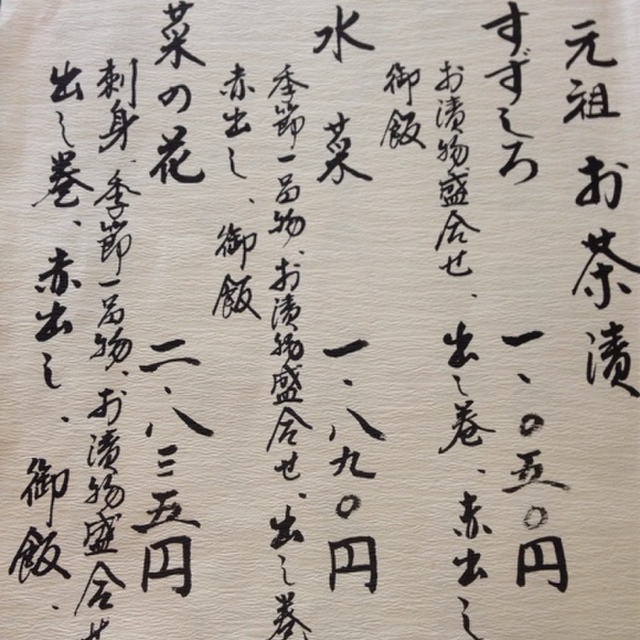 元祖 お茶漬
すずしろ 一、〇五〇円
お漬物盛合せ、出し巻、赤出し
御飯
水菜 一、八九〇円
季節一品物、お漬物盛合せ、出し巻
赤出し、御飯
菜の花 二、八三五円
刺身、季節一品物、お漬物盛合せ
出し巻、赤出し、御飯、